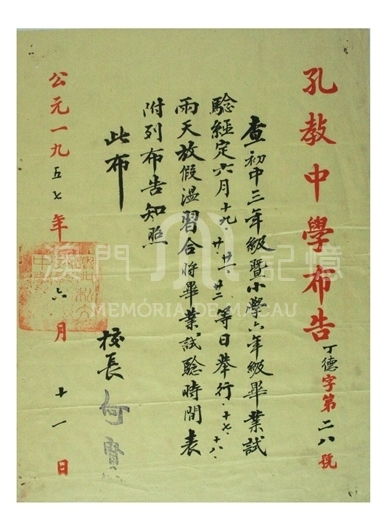 孔教中學布告
丁德字第二八號
查初中三年級暨小學六年級畢業試
驗經定六月十九、廿、廿一、廿二等日舉行、十七、十八、
兩天放假溫習合將畢業試驗時間表
附列布告知照
此布
校長 何賢
公元一九五七年六月十一日
澳門記憶
MEMÓRIA DE MACAU